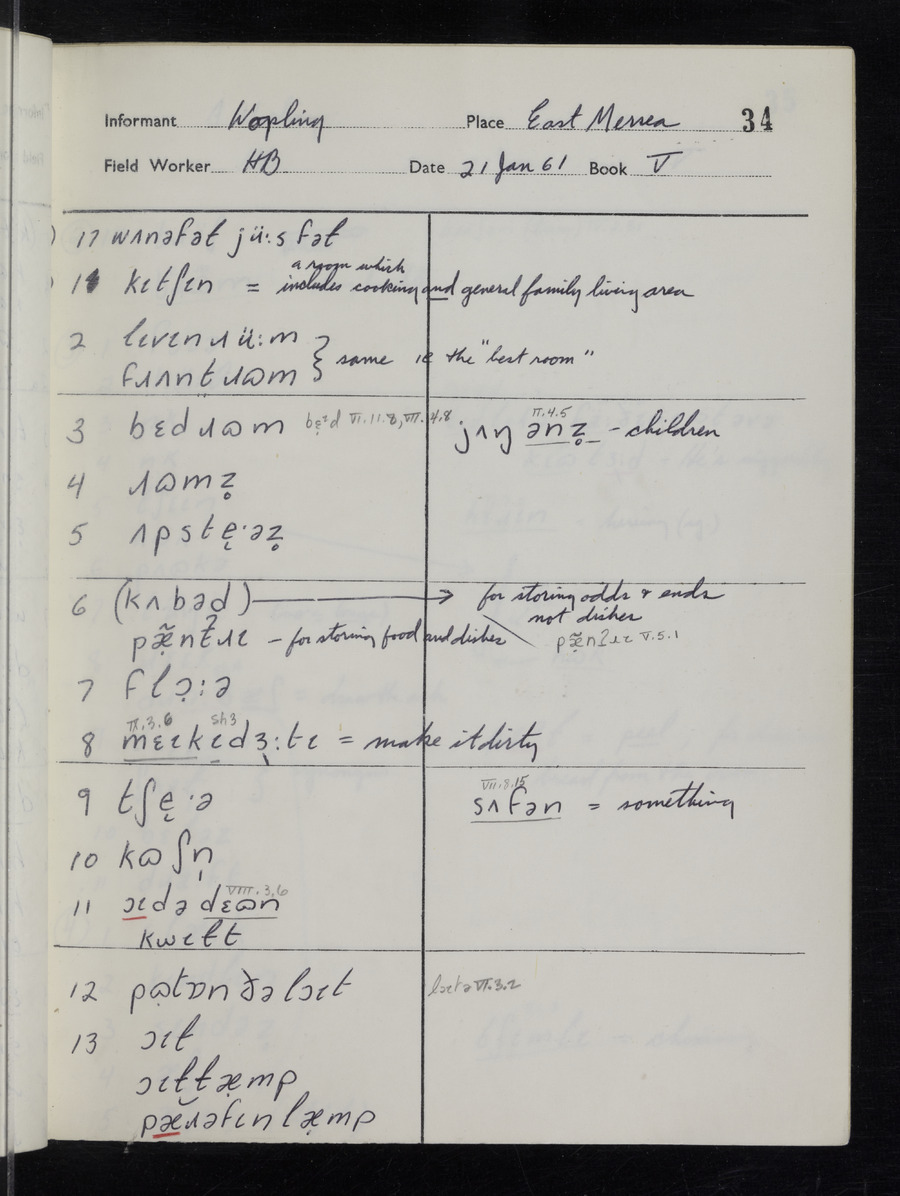 Informant Wopling Place East Mersea 34
Field Worker HB Date 21 Jan 61 Book V
17 wʌnəfət jüːs fət
1 kɪtʃɪn = a room which includes cooking and general family living area
2 lɪvɪn ɹüːm
fɹʌnt ɹɷm } same ie the "best room"
3 bɛd ɹɷm bɛ̝ᵊd VI.11.8, VII.4.8 jʌŋ ənz̥ II.4.5 - children
4 ɹɷmz̥
5 ʌpstę·əz̥
6 (kʌbəd) → for storing odds & ends
not dishes
pæ̃nt̚ʔɹɪ - for storing food and dishes pæ̃nʔɹɪ V.5.1
7 flɔ̣ːə
8 mɛɪk ɪdɜːtɪ = make it dirty IX.3.6 sh3
9 tʃę·ə sʌfən = something VII.8.15
10 kɷʃn̩
11 ɔɪdə dɛɷn VIII.3.6
kwɪɫt
12 pɷtɒn ðə lɔɪt lɔɪtə VI.3.2
13 ɔɪt
ɔɪttæmp
pæ̆ɹəfɪn læ̣mp